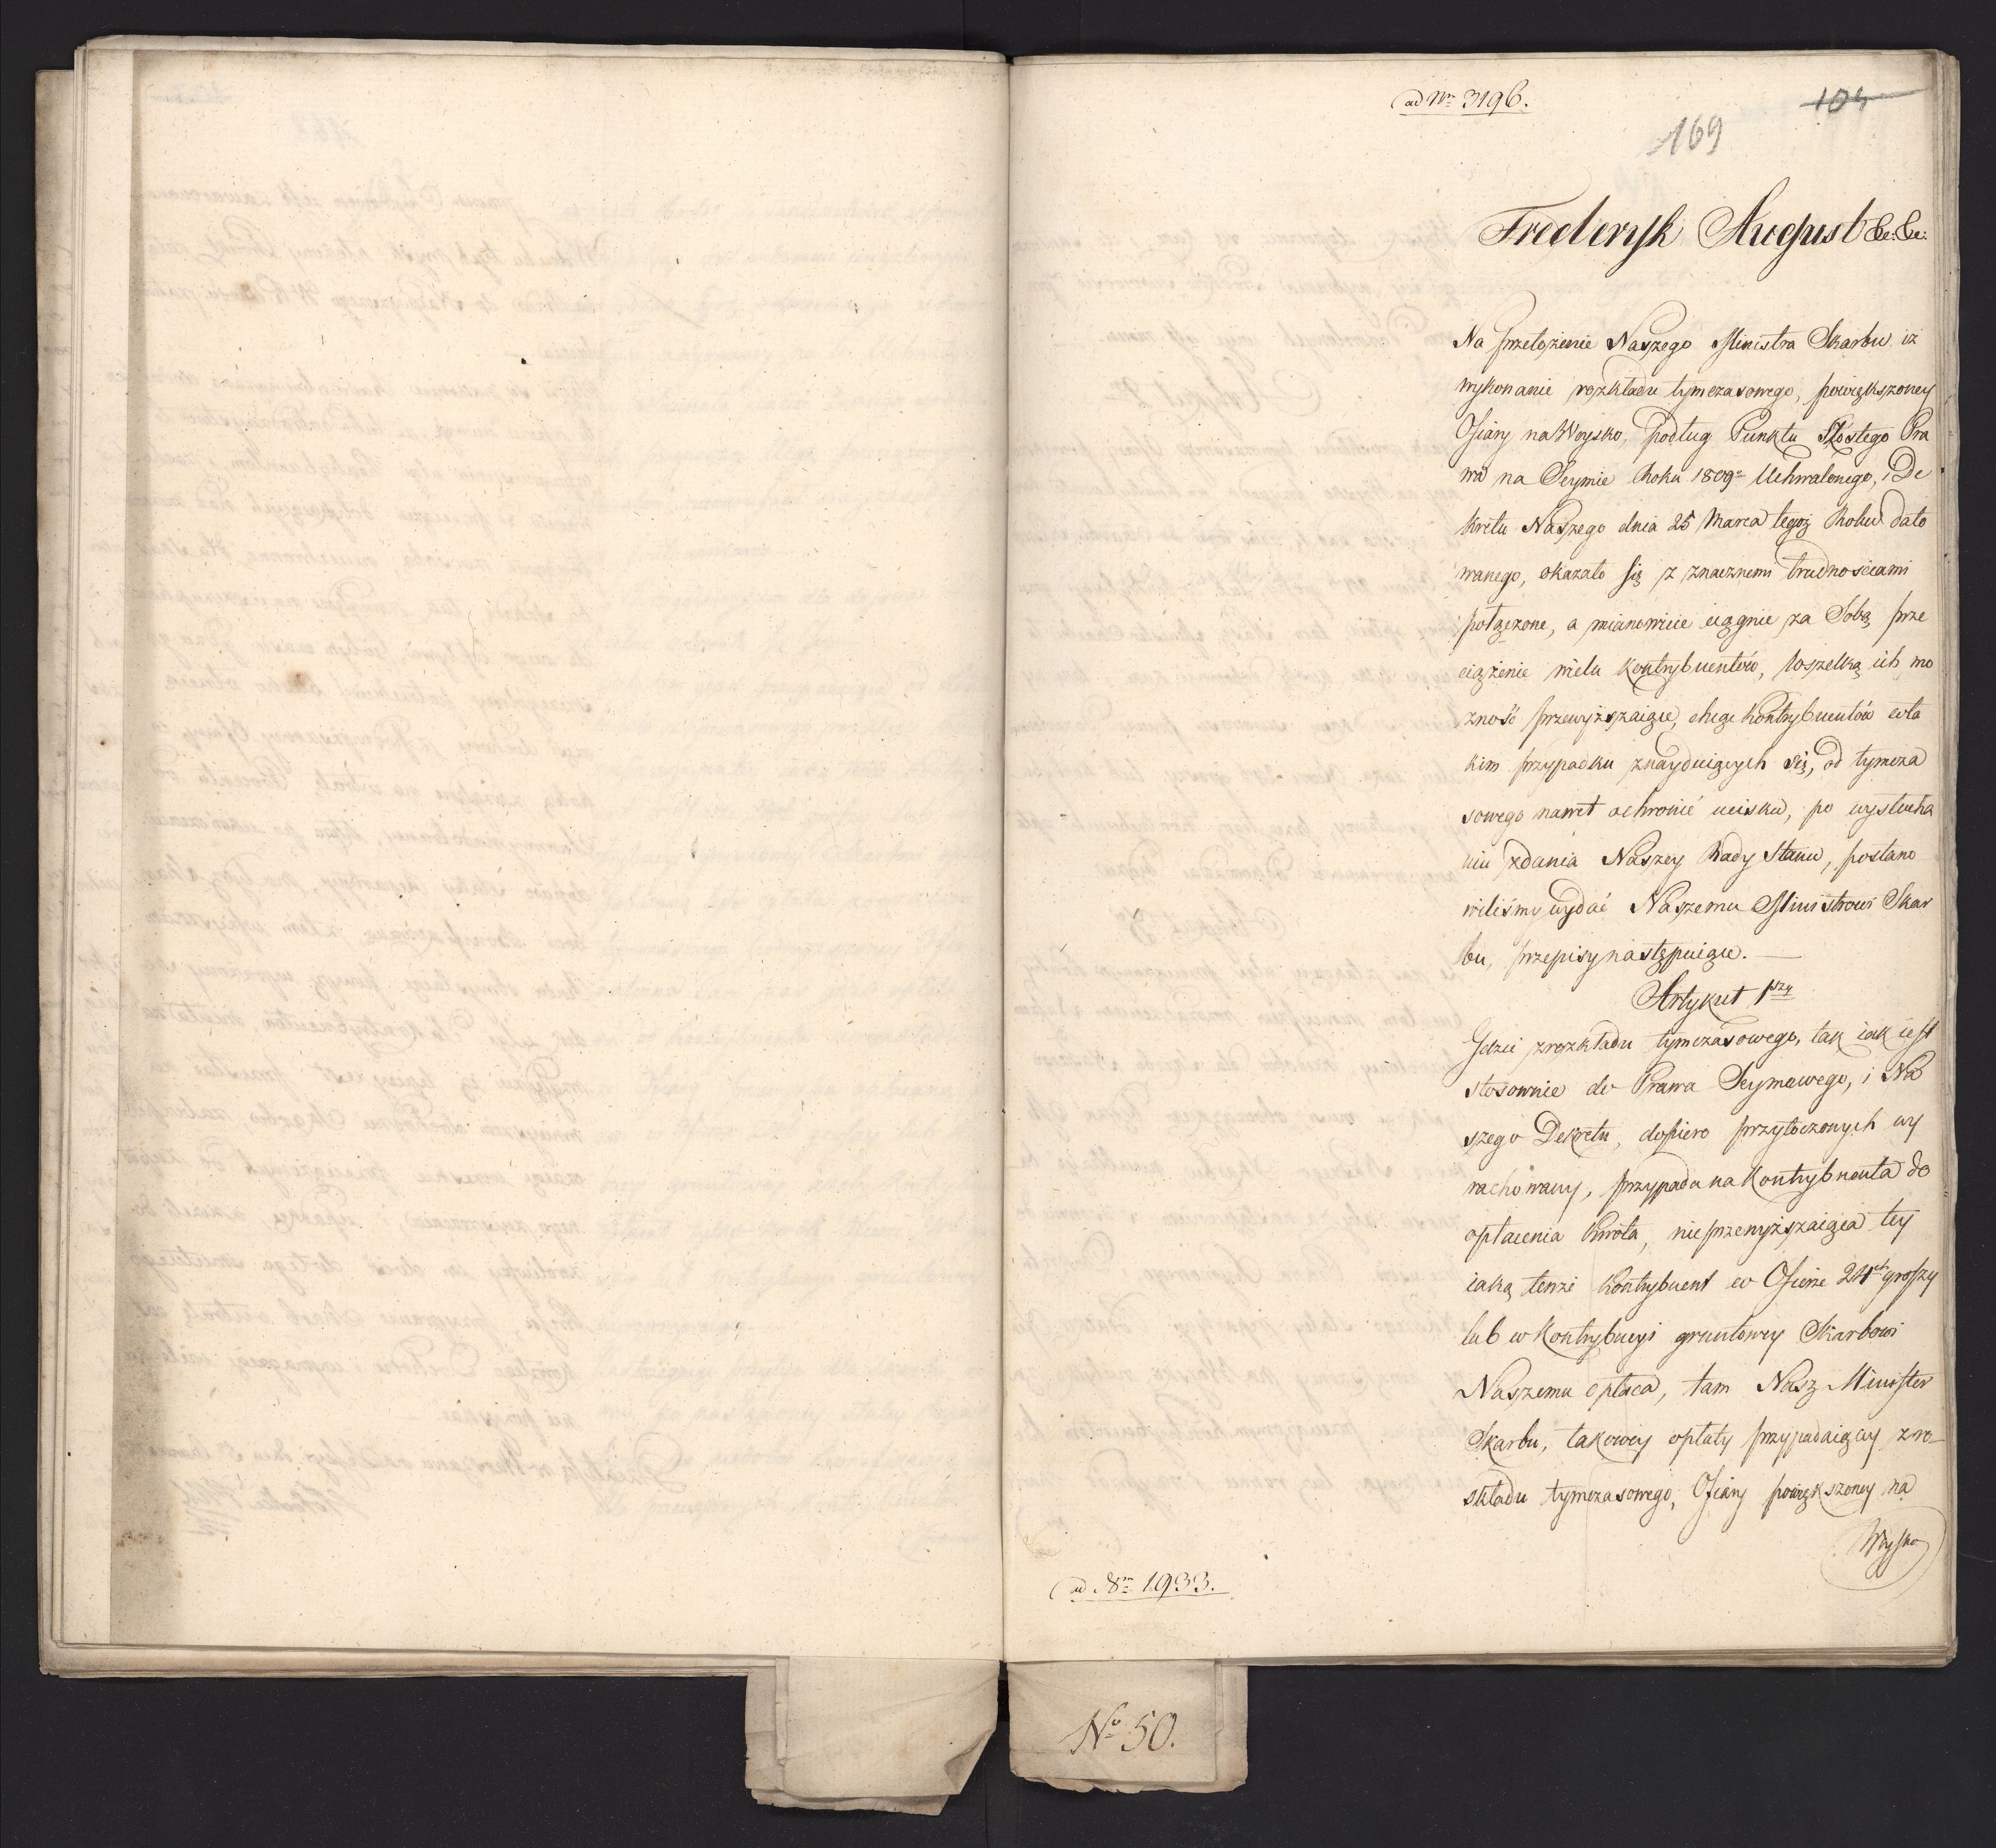 ad Nrm 3196.
104
169
Frederyk August &c: &c:
Na przełożenie Naszego Ministra Skarbu iż
wykonanie rozkładu tymczasowego, powiększoney
Ofiary na Woysko, podług Punktu Szóstego Pra
wa na Seymie Roku 1809o Uchwalonego, i De
kretu Naszego dnia 25 Marca tegoż Roku dato
wanego, okazało się z znacznemi trudnościami
połączone, a mianowicie ciągnie za Sobą prze
ciążenie wielu Kontrybuentów, wszelką ich mo
żność przewyższaiące, chcąc Kontrybuentów w ta
kim przypadku znayduiących się, od tymcza
sowego nawet ochronić ucisku, po wysłucha
niu zdania Naszey Rady Stanu, postano
wiliśmy wydać Naszemu Ministrowi Skar
bu, przepisy następuiące. —
Artykuł 1szy
Gdzie z rozkładu tymczasowego, tak iak iest
stosownie do Prawa Seymowego, i Na
szego Dekretu, dopiero przytoczonych wy
rachowany, przypada na Kontrybuenta do
opłacenia Kwota, nieprzewyższaiąca tey
iaką tenże Kontrybuent w Ofierze 24ch groszy
lub w Kontrybucyi gruntowey Skarbowi
Naszemu opłaca, tam Nasz Minister
Skarbu, takowey opłaty przypadaiącey z ro-
składu tymczasowego, Ofiary powiększoney na
Woysko
ad Nrm 1933.
No 50.